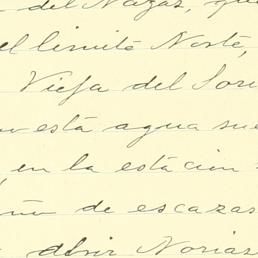 del Nazas, que
el limite Norte,
Vieja del Sori
está agua sue
en la estación
de escazas
abrir Norias